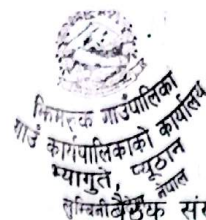 झिमरुक गाउँपालिका
गाउँ कार्यपालिकाको कार्यालय
भ्यागुते, प्यूठान
लुम्बिनी नेपाल
बैठक सं